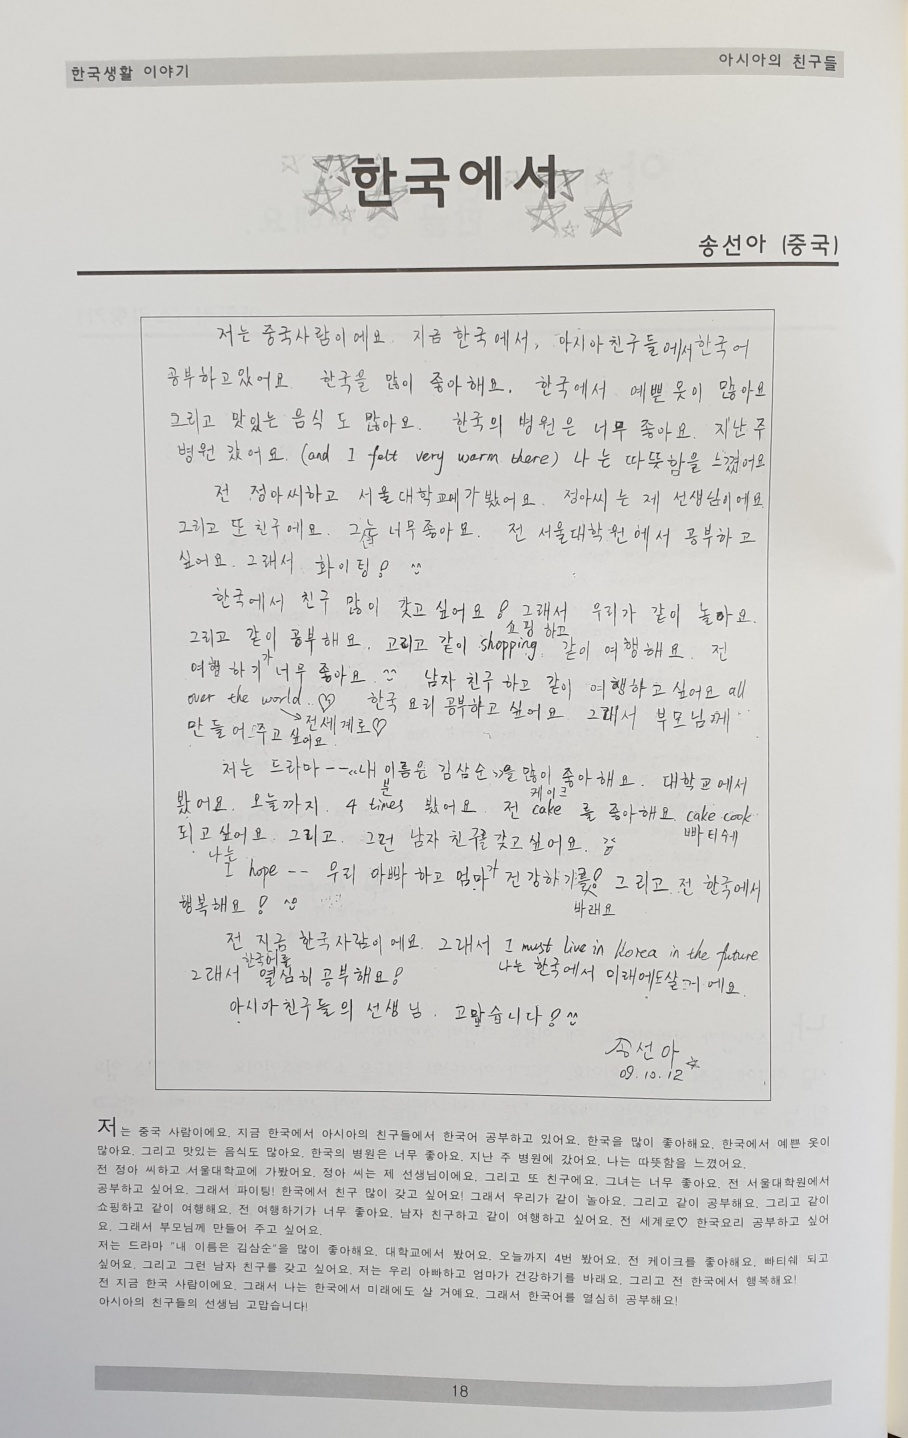 한국생활 이야기
아시아의 친구들
한국에서
송선아 (중국)
저는 중국사람이에요. 지금 한국에서, 아시아친구들에서 한국어
공부하고있어요. 한국을 많이 좋아해요. 한국에서 예쁜 옷이 많아요
그리고 맛있는 음식도 많아요. 한국의 병원은 너무 좋아요. 지난주
병원 갔어요. (and I felt very warm there) 나는 따뜻함을 느꼈어요
전 정아씨하고 서울대학교에 가봤어요. 정아씨는 제 선생님이에요
그리고 또 친구에요. 그녀는 너무 좋아요. 전 서울대학원에서 공부하고
싶어요. 그래서 화이팅!
한국에서 친구 많이 갖고 싶어요! 그래서 우리가 같이 놀아요.
쇼핑 하고
그리고 같이 공부해요. 그리고 같이 shopping. 같이 여행해요. 전
여행하기가 너무 좋아요. 남자 친구하고 같이 여행하고 싶어요 all
over the world. ♡ 한국 요리 공부하고 싶어요. 그래서 부모님께
전세계로♡
만들어 주고 싶어요
저는 드라마 --《내 이름은 김삼순》을 많이 좋아해요. 대학교에서
번 케이크
봤어요. 오늘까지. 4 times 봤어요. 전 cake 를 좋아해요 cake cook
빠티쉐
되고싶어요. 그리고. 그런 남자 친구를 갖고 싶어요.
나는
I hope -- 우리 아빠 하고 엄마가 건강하기를! 그리고 전 한국에서
바래요
행복해요!
전 지금 한국사람이에요. 그래서 I must live in Korea in the future
한국어를 나는 한국에서 미래에도살거에요.
그래서 열심히 공부해요!
아시아친구들의 선생님. 고맙습니다!
송선아
09.10.12
저는 중국 사람이에요. 지금 한국에서 아시아의 친구들에서 한국어 공부하고 있어요. 한국을 많이 좋아해요. 한국에서 예쁜 옷이
많아요. 그리고 맛있는 음식도 많아요. 한국의 병원은 너무 좋아요. 지난 주 병원에 갔어요. 나는 따뜻함을 느꼈어요.
전 정아 씨하고 서울대학교에 가봤어요. 정아 씨는 제 선생님이에요. 그리고 또 친구에요. 그녀는 너무 좋아요. 전 서울대학원에서
공부하고 싶어요. 그래서 파이팅! 한국에서 친구 많이 갖고 싶어요! 그래서 우리가 같이 놀아요. 그리고 같이 공부해요. 그리고 같이
쇼핑하고 같이 여행해요. 전 여행하기가 너무 좋아요. 남자 친구하고 같이 여행하고 싶어요. 전 세계로♡ 한국요리 공부하고 싶어
요. 그래서 부모님께 만들어 주고 싶어요.
저는 드라마 "내 이름은 김삼순"을 많이 좋아해요. 대학교에서 봤어요. 오늘까지 4번 봤어요. 전 케이크를 좋아해요. 빠티쉐 되고
싶어요. 그리고 그런 남자 친구를 갖고 싶어요. 저는 우리 아빠하고 엄마가 건강하기를 바래요. 그리고 전 한국에서 행복해요!
전 지금 한국 사람이에요. 그래서 나는 한국에서 미래에도 살 거에요. 그래서 한국어를 열심히 공부해요!
아시아의 친구들의 선생님 고맙습니다!
18